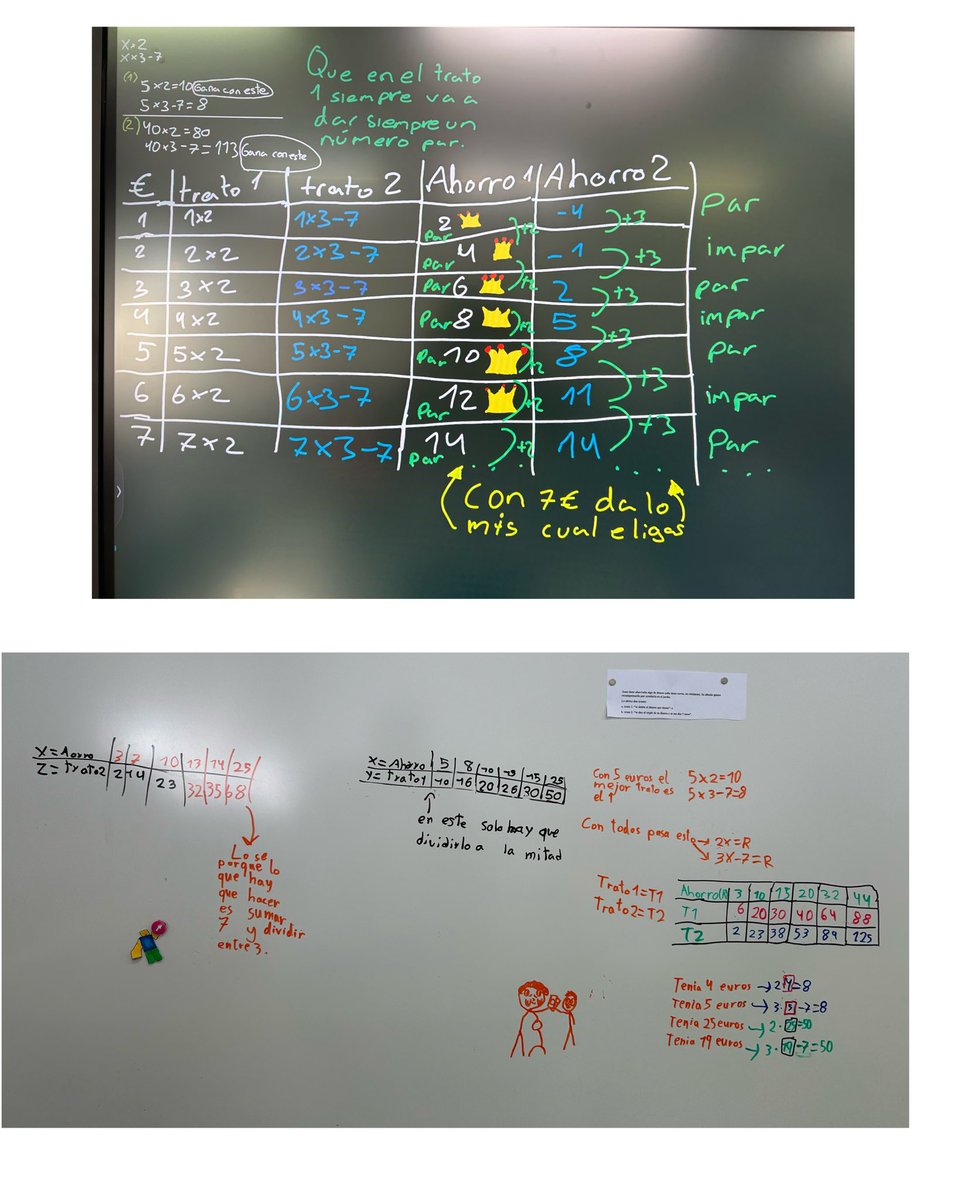 x×2
x×3-7
(1) 5×2=10 Gana con este
5×3-7=8
(2) 40×2=80
40×3-7=113 Gana con este
Que en el trato
1 siempre va a
dar siempre un
número par.
€ trato 1 trato 2 Ahorro 1 Ahorro 2
1 1×2 1×3-7 Par 2 +2 -4 +3 Par
2 2×2 2×3-7 Par 4 +2 -1 +3 impar
3 3×2 3×3-7 Par 6 +2 2 +3 par
4 4×2 4×3-7 Par 8 +2 5 +3 impar
5 5×2 5×3-7 Par 10 +2 8 +3 Par
6 6×2 6×3-7 Par 12 +2 11 +3 impar
7 7×2 7×3-7 Par 14 +2 14 Par
.... .... ...
Con 7€ da lo
mis cual eligas
X=Aorro 3 7 10 13 14 25
Z=trato2 2 14 23 32 35 68
Lo se
porque lo
que hay
que hacer
es sumar
7 y dividir
entre 3.
X=Ahorro 5 8 10 13 15 25
Y=Trato1 10 16 20 26 30 50
en este solo hay que
dividirlo a la mitad
Con 5 euros el 5×2=10
mejor trato es 5×3-7=8
el 1
Con todos pasa esto → 2x=R
→ 3X-7=R
Trato1=T1
Trato2=T2
3 10 15 20 32 44
T1 6 20 30 40 64 88
T2 2 23 38 53 89 125
Tenia 4 euros → 2·4=8
Tenia 5 euros → 3·5-7=8
Tenia 25euros → 2·25=50
Tenia 19 euros → 3·19-7=50